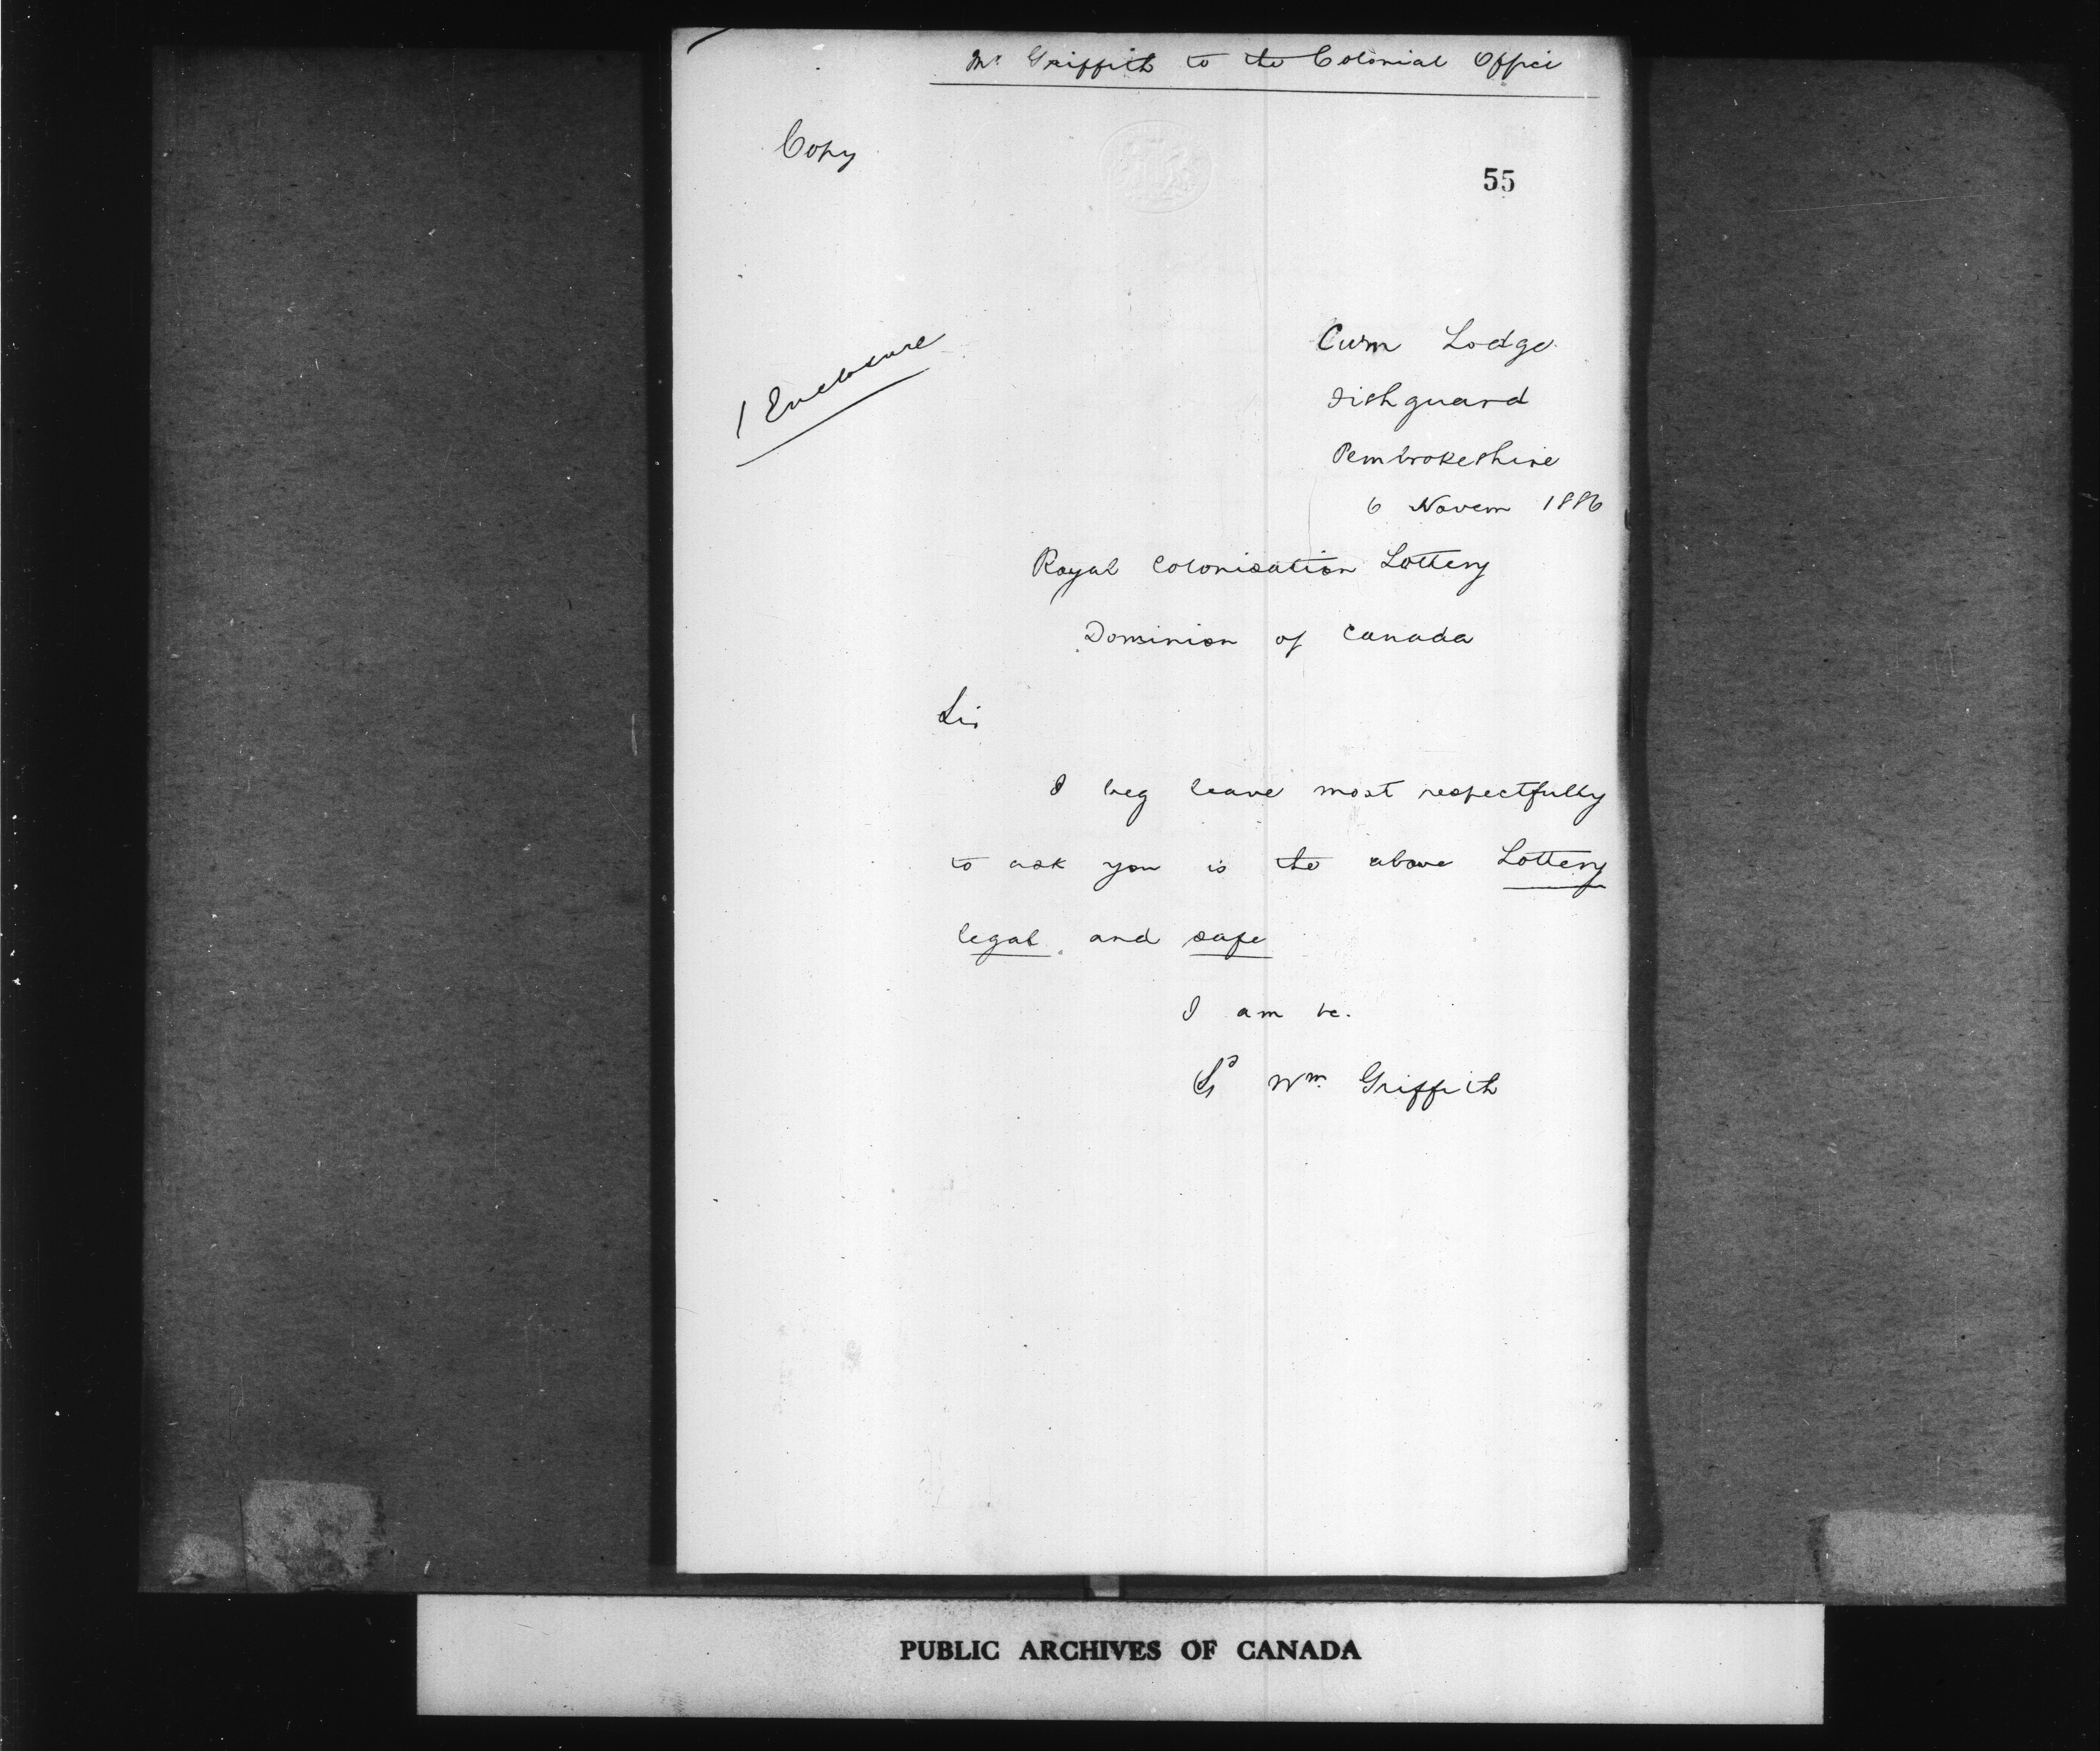 Mr Griffith to the Colonial Office
Copy
55
1 Enclosure
Cwm Lodge
Fishguard
Pembrokeshire
6 Novem 1886
Royal Colonisation Lottery
Dominion of Canada
Sir
I beg leave most respectfully
to ask you is the above Lottery
legal and safe
I am &c.
Sd Wm Griffith
PUBLIC ARCHIVES OF CANADA